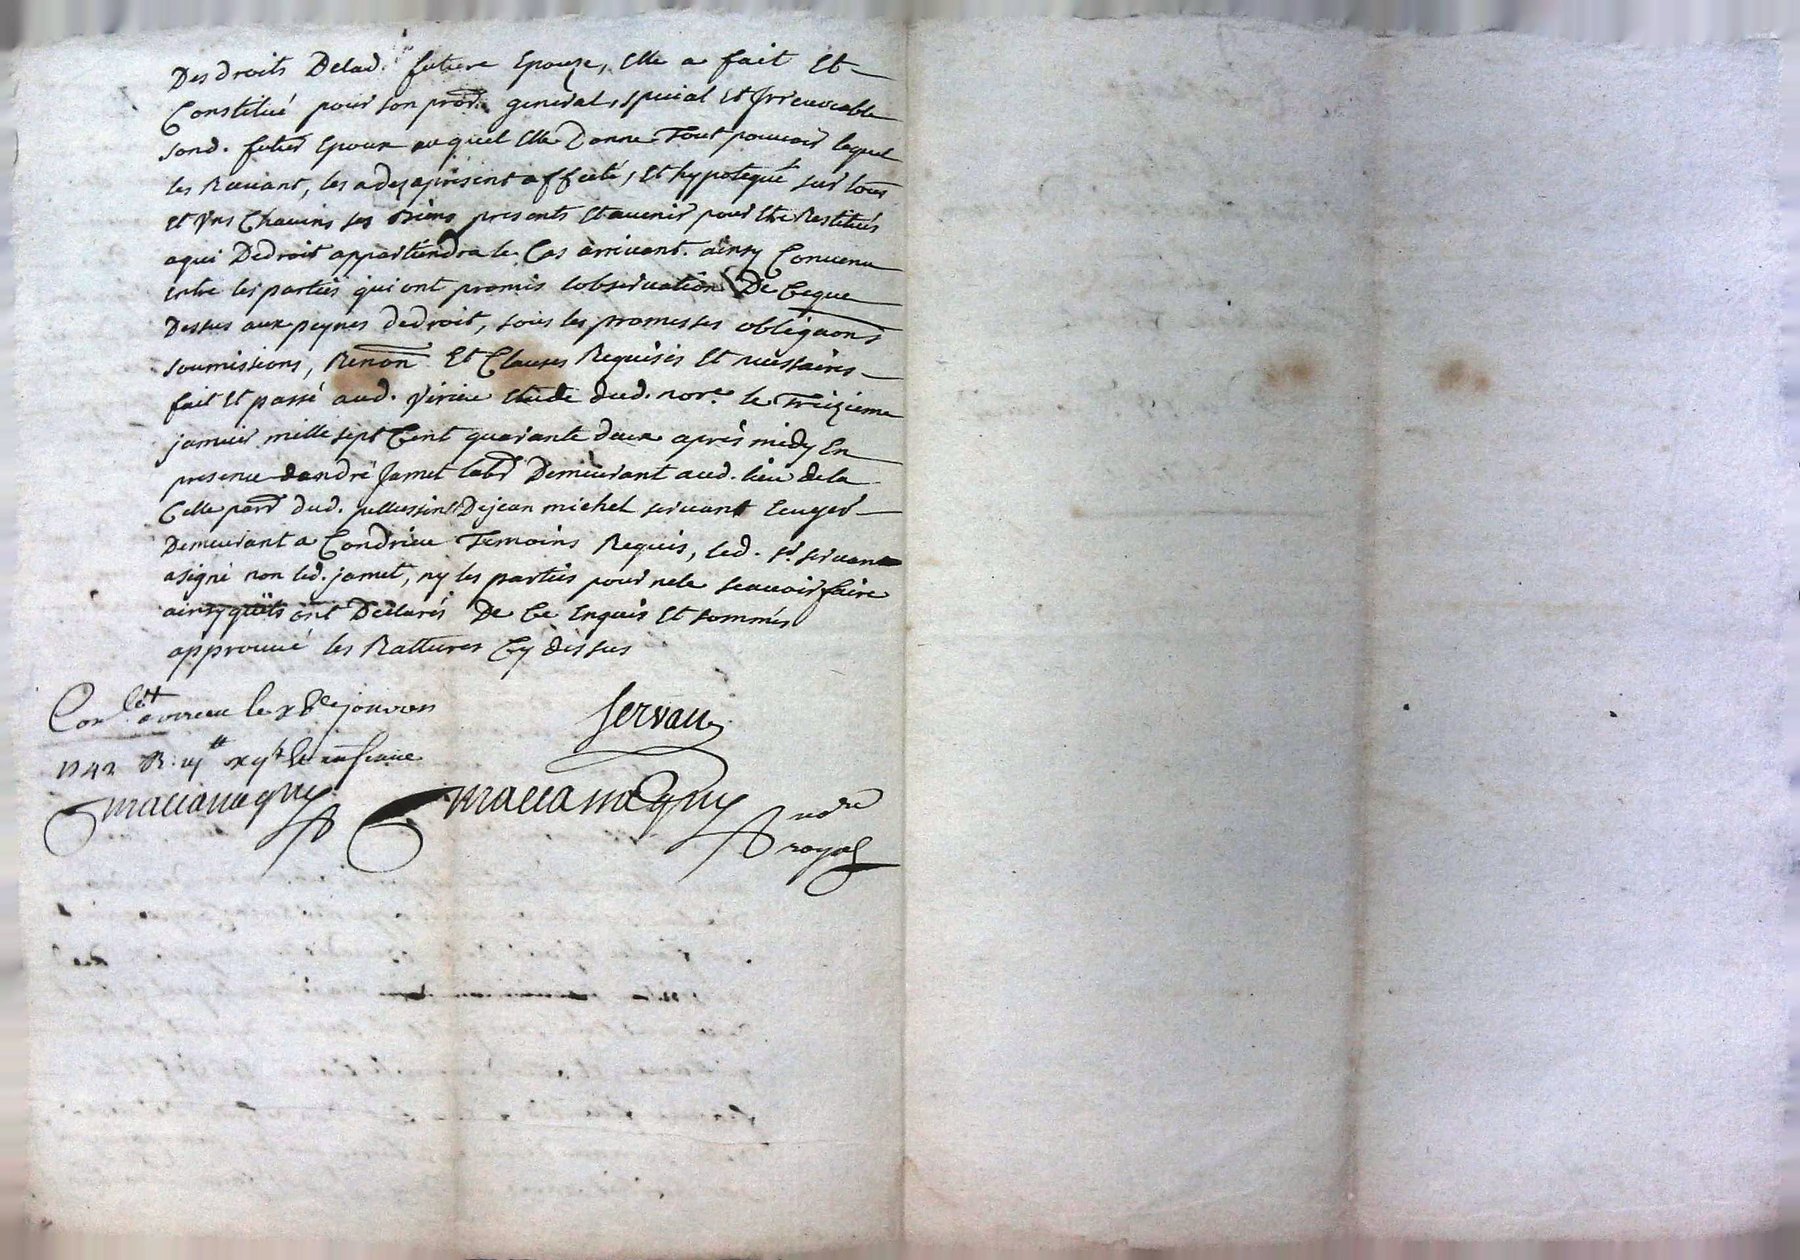 Des droits Delad. future Epouse, Elle a fait Et
Constitué pour son procr. general, special Et Irrevocable
sond. futur Epoux auquel Elle Donne Tout pouvoir lequel
les Recevant, les a des apresent affecté, Et hypotequé sur tous
et Uns Chacuns ses Biens presents Et avenir pour Etre Restitués
aqui Dedroit appartiendra le Cas arrivant. ainsy Convenu
entre les parties qui ont promis lobservation De Ceque
Dessus aux peynes dedroit, sous les promesses obligaons
soumissions, Renon Et Clauses Requises Et necessaires
fait Et passé aud. Virieu Etude dud. nore. le Treizieme
janvier mille sept Cent quarante deux après midy En
presence dandré Jamet labr Demeurant aud. lieu dela
Celle parr dud. Dejean michel servant Ecuyer
Demeurant a Condrieu Temoins Requis, led. sr. servant
asigné non led. jamet, ny les parties pour nele scavoir faire
ainsy quils ont Declarés De Ce Enquis Et sommés
approuvé les Rattures Cy dessus
Conlé. a vireu le janvier
1742 R.
Servan
maccamagny
maccamagny nore
royal